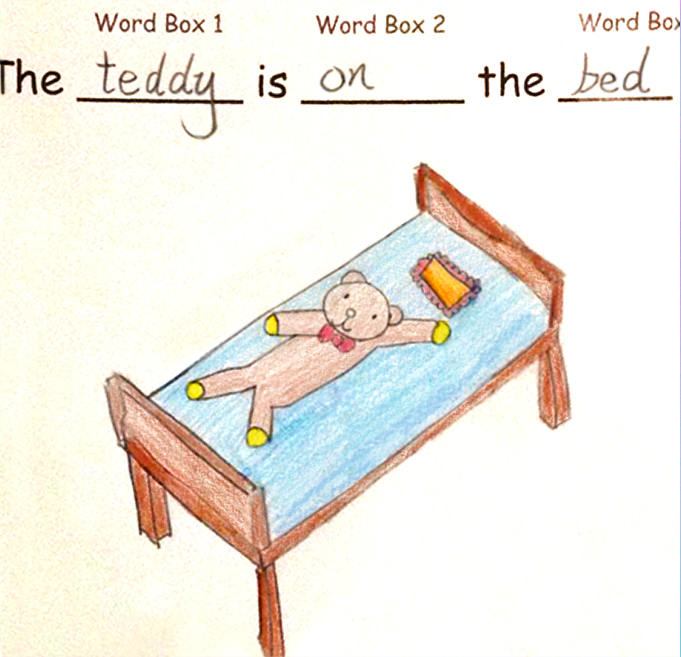 Word Box 1 Word Box 2 Word Box
The teddy is on the bed